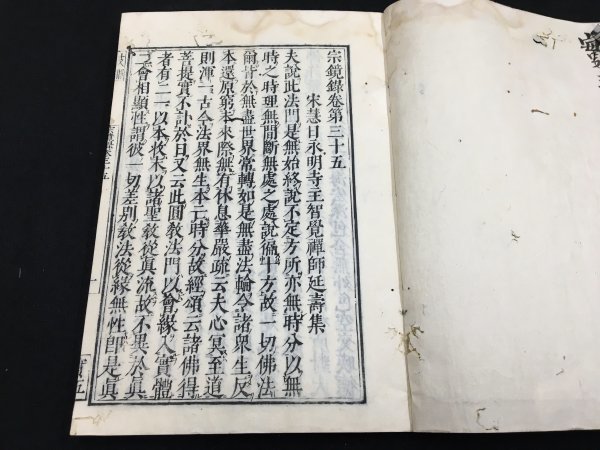 宗鏡錄卷第三十五
宋慧日永明寺主智覺禪師延壽集
夫說此法門是無始終說不定方所亦無時分以無
時之時理無間斷無處之處說徧十方故一切佛法
爾皆於無盡世界常轉如是無盡法輪令諸衆生反
本還原窮本來際無有休息華嚴疏云夫心冥至道
則渾一古今法界無生本亡時分故經頌云諸佛得
菩提實不計於日又云此圓敎法門以會緣入實體
者有二一以本收末以諸聖敎從眞流故不異於眞
二會相顯性謂彼一切差別敎法從緣無性卽是眞